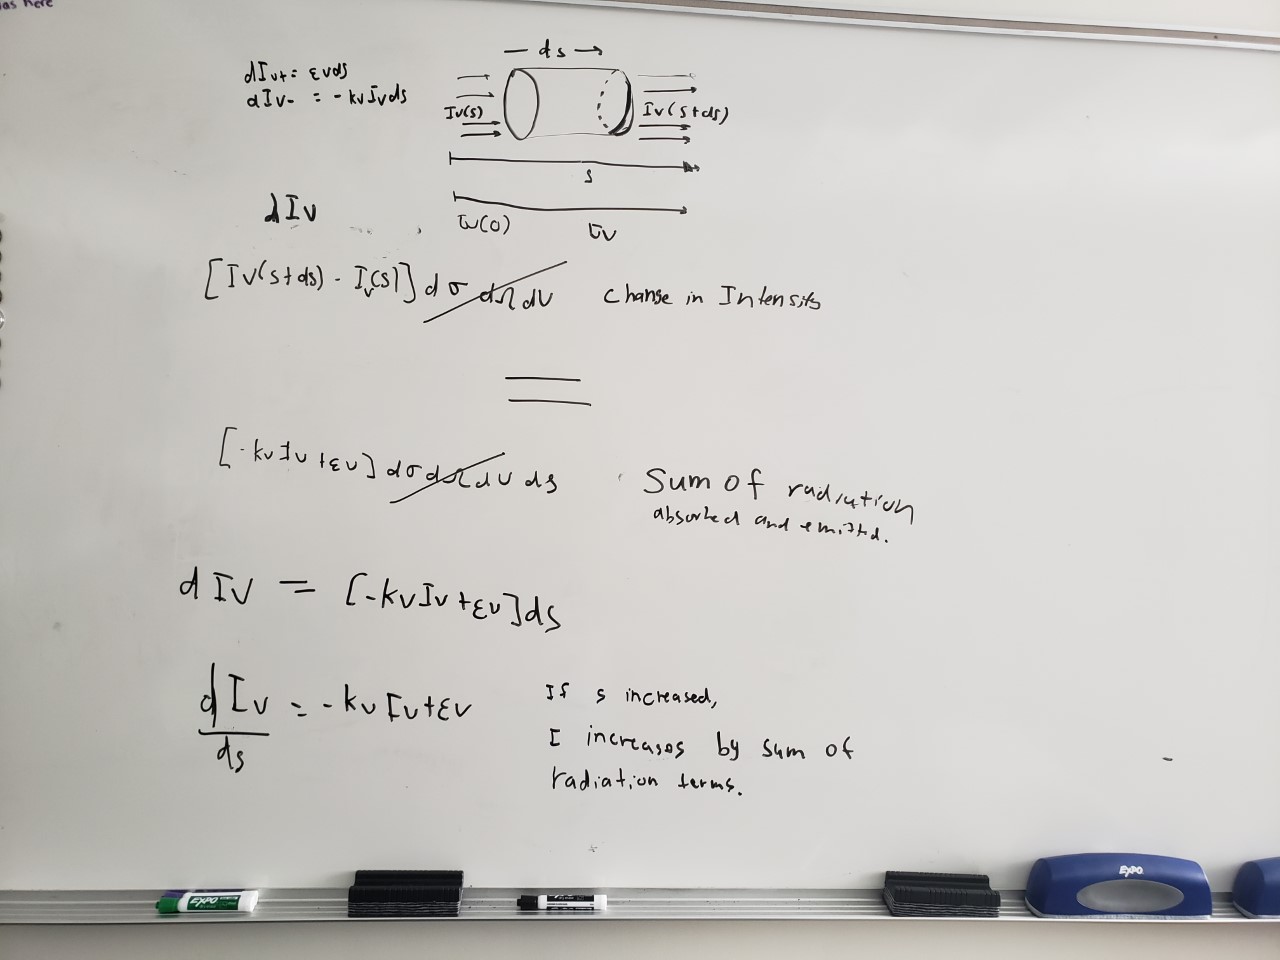 as here
dIν+ = ενds
dIν- = -kνIνds
— ds →
Iν(s)
Iν(s+ds)
s
τν(0)
τν
dIν
[Iν(s+ds) - Iν(s)] dσ dΩ dν change in Intensity
=
[-kνIν+εν] dσ dΩ dν ds
Sum of radiation
absorbed and emitted.
dIν = [-kνIν+εν]ds
dIν/ds = -kνIν+εν
If s increased,
I increases by sum of
radiation terms.
EXPO
EXPO